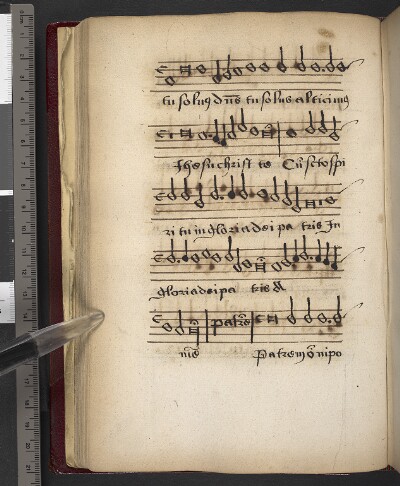 tu solus dns tu solus altissimus
Jhesu christe Cu scto spi
ri tu in gloria dei pa tris In
gloria dei pa tris A
patre
me Patrem omnipo